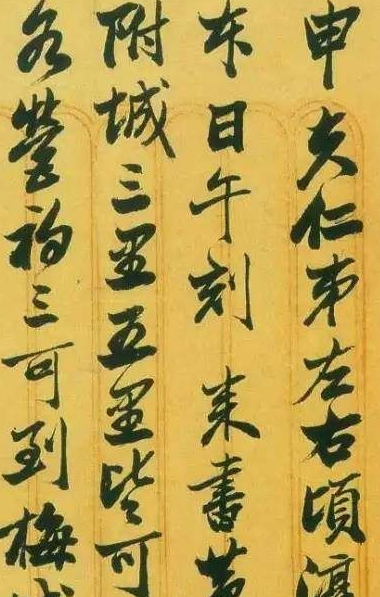 申夫仁弟左右頃
本日午刻 来書
附城三里五里皆可
各營初三可到梅